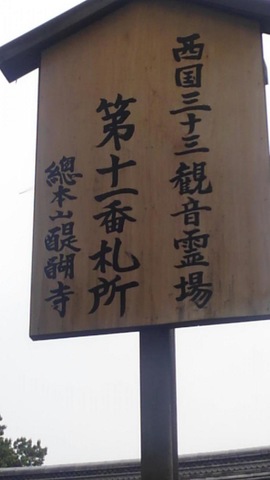 西国三十三観音霊場
第十一番札所
總本山醍醐寺